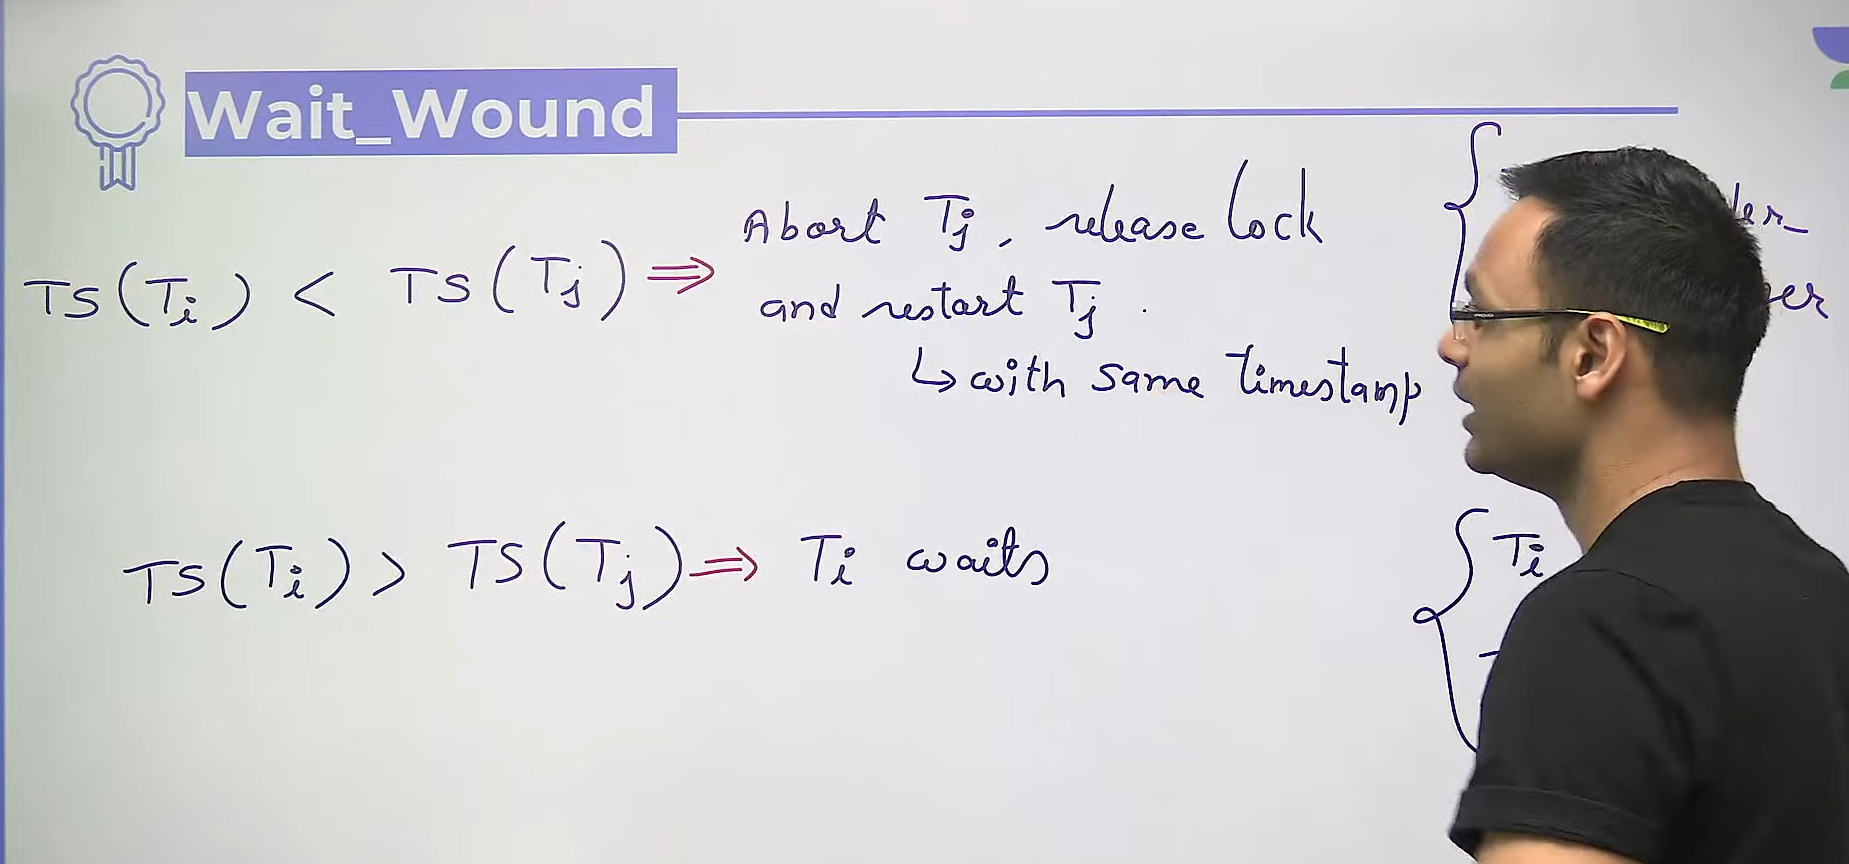 Wait_Wound
TS(Ti) < TS(Tj) ⇒ Abort Tj, release lock
and restart Tj.
↳ with same timestamp
TS(Ti) > TS(Tj) ⇒ Ti waits
Ti